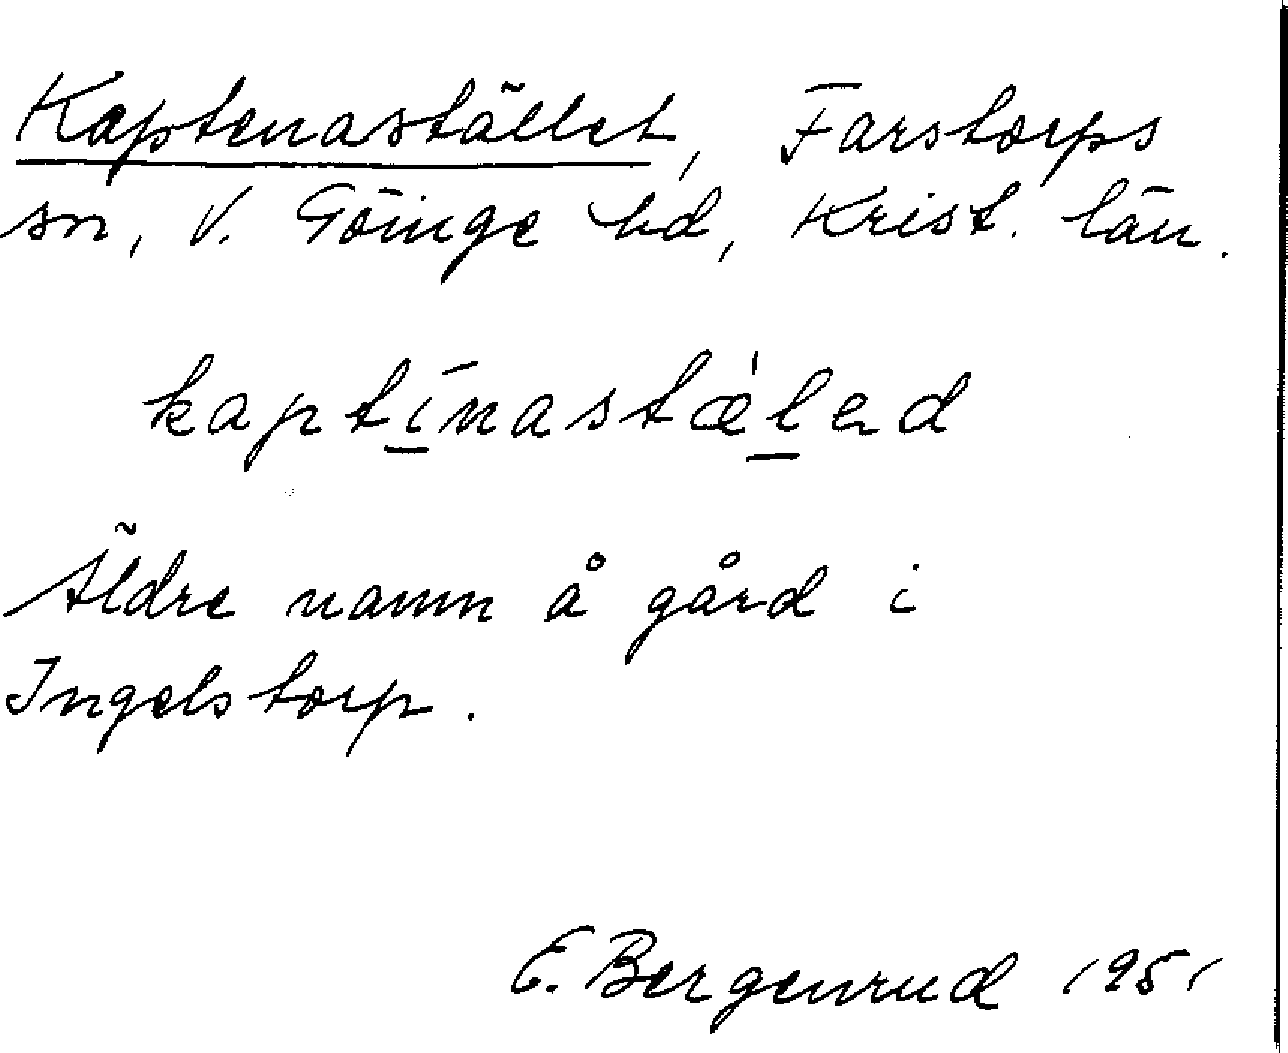 Kaptenastället, Farstorps
sn, V. Göinge hd, Krist. län.
kaptínastæ̀led
Äldre namn å gård i
Ingelstorp.
E. Bergenrud 1951